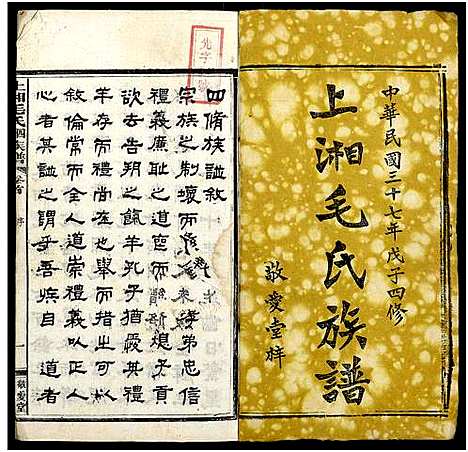 中華民國三十七年戊子四修
上湘毛氏族譜
敬愛堂梓
四脩族譜敘
宗族之制壞而孝弟忠信
禮義廉恥之道空而新媳子貢
欲去告朔之餼羊孔子猶嚴其禮
羊存而禮尚在也舉而措出可以
敘倫常而全人道崇禮義以正人
心者其譜之謂乎吾族自 道者
上湘毛氏四修族譜 卷首
序
一
敬愛堂